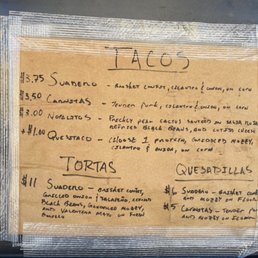 TACOS
$3.75 SUADERO - BRISKET CONFIT, CILANTRO & ONION, ON CORN
$3.50 CARNITAS - TENDER PORK, CILANTRO & ONION, ON CORN
$3.00 NOPALITOS - PRICKLY PEAR CACTUS SAUTEED IN SALSA ROJA,
REFRIED BLACK BEANS, AND COTIJA CHEESE
+ $1.00 QUESOTACO - CHOOSE 1 PROTEIN, GRIDDLED MOZZY,
CILANTRO & ONION, ON CORN
TORTAS
$11 SUADERO - BRISKET CONFIT,
GRILLED ONION & JALAPEÑO, REFRIED
BLACK BEANS, GRIDDLED MOZZY,
AND VALENTINA MAYO ON FRESH
QUESADILLAS
$6 SUADERO - BRISKET CONFIT
AND MOZZY ON FLOUR
$5 CARNITAS - TENDER PORK
AND MOZZY ON FLOUR